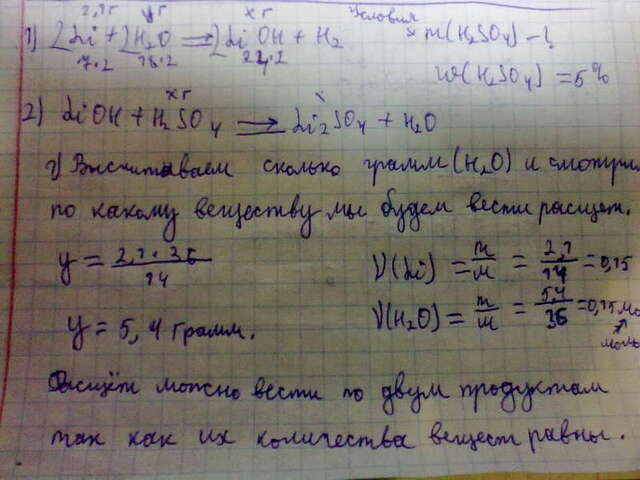 2,1г уг хг Условия
1) 2Li + 2H₂O ⟹ 2LiOH + H₂ m(H₂SO₄) -
7·2 18·2 24·2 w(H₂SO₄) = 5%
хг х
2) LiOH + H₂SO₄ ⟹ Li₂SO₄ + H₂O
1) Высчитываем сколько грамм (H₂O) и смотрим
по какому веществу мы будем вести расщет.
y = 2,1 · 36 / 14 ν(Li) = m/м = 2,1/14 = 0,15
y = 5,4 грамм. ν(H₂O) = m/м = 5,4/36 = 0,15 мо
моль
Расщёт можно вести по двум продуктам
так как их количества веществ равны.